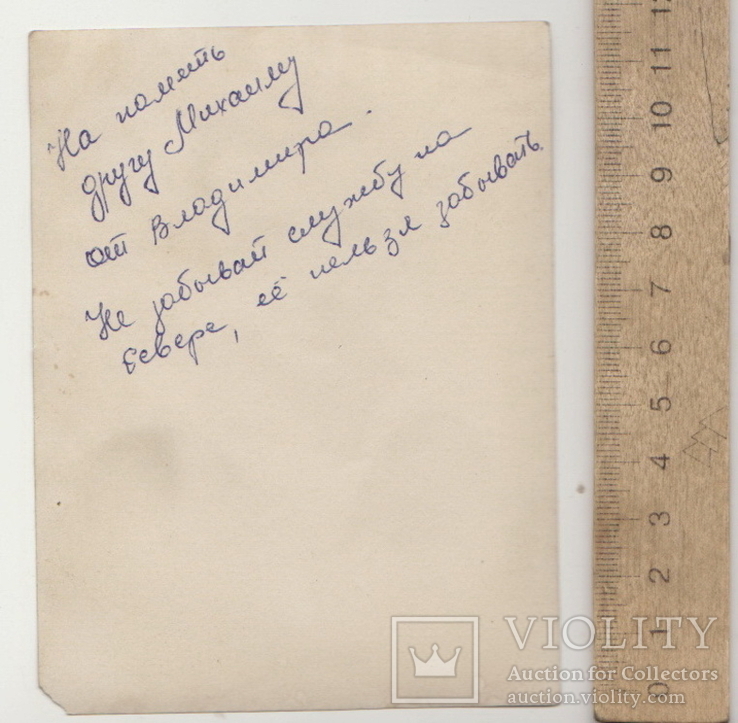 На память
другу Михаилу
от Владимира.
Не забывай службу на
Севере, её нельзя забывать.
0 1 2 3 4 5 6 7 8 9 10 11 12
VIOLITY
Auction for Collectors
auction.violity.com